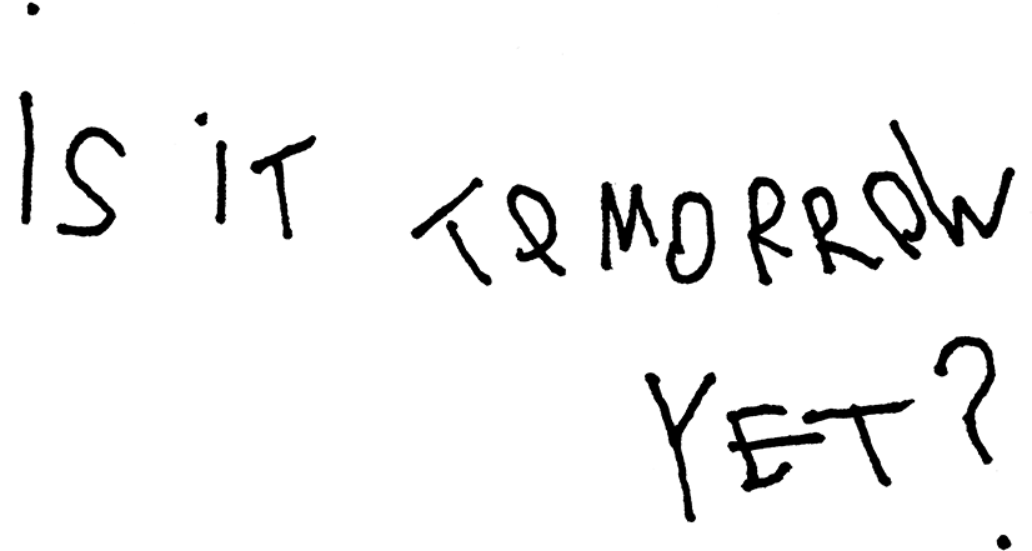 IS IT TOMORROW
YET?